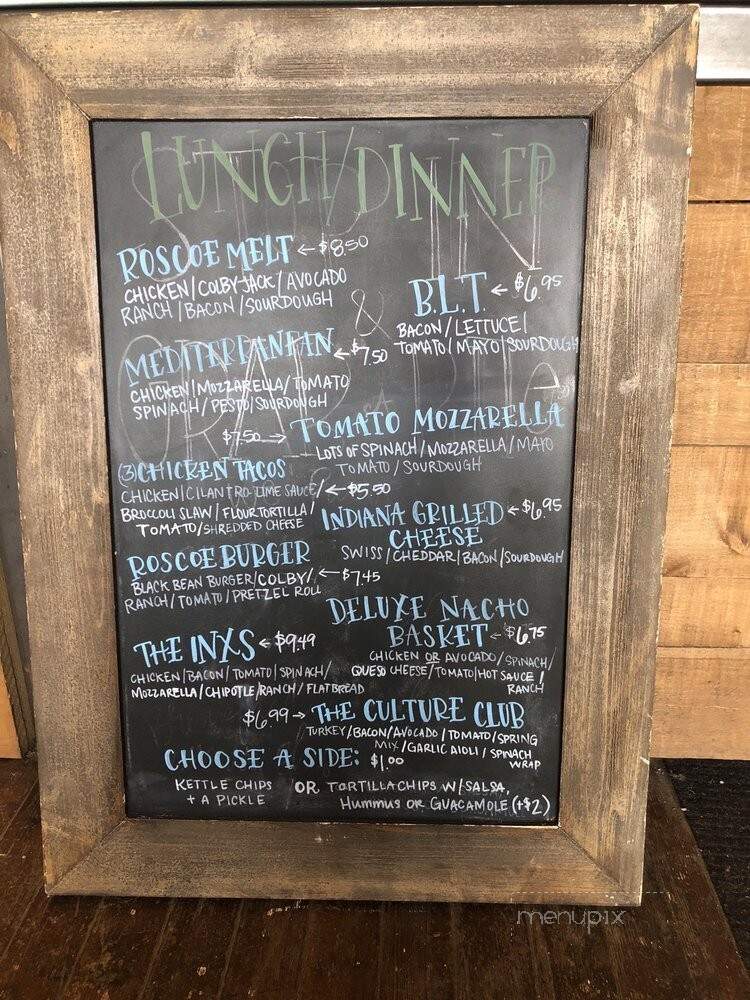 LUNCH/DINNER
ROSCOE MELT ← $8.50
CHICKEN/COLBY JACK/AVOCADO
RANCH/BACON/SOURDOUGH
B.L.T. ← $6.95
BACON/LETTUCE/
TOMATO/MAYO/SOURDOUGH
MEDITERRANEAN ← $7.50
CHICKEN/MOZZARELLA/TOMATO
SPINACH/PESTO/SOURDOUGH
$7.50 → TOMATO MOZZARELLA
LOTS OF SPINACH/MOZZARELLA/MAYO
TOMATO/SOURDOUGH
(3) CHICKEN TACOS
CHICKEN/CILANTRO-LIME SAUCE/ ← $5.50
BROCCOLI SLAW/FLOUR TORTILLA/
TOMATO/SHREDDED CHEESE
INDIANA GRILLED ← $6.95
CHEESE
SWISS/CHEDDAR/BACON/SOURDOUGH
ROSCOE BURGER
BLACK BEAN BURGER/COLBY/ ← $7.45
RANCH/TOMATO/PRETZEL ROLL
DELUXE NACHO
BASKET ← $6.75
CHICKEN OR AVOCADO/SPINACH/
QUESO CHEESE/TOMATO/HOT SAUCE/
RANCH
THE INXS ← $9.49
CHICKEN/BACON/TOMATO/SPINACH/
MOZZARELLA/CHIPOTLE RANCH/FLATBREAD
$6.99 → THE CULTURE CLUB
TURKEY/BACON/AVOCADO/TOMATO/SPRING
MIX/GARLIC AIOLI/SPINACH
WRAP
CHOOSE A SIDE: $1.00
KETTLE CHIPS
+ A PICKLE
OR TORTILLA CHIPS W/SALSA,
HUMMUS OR GUACAMOLE (+$2)
menupix